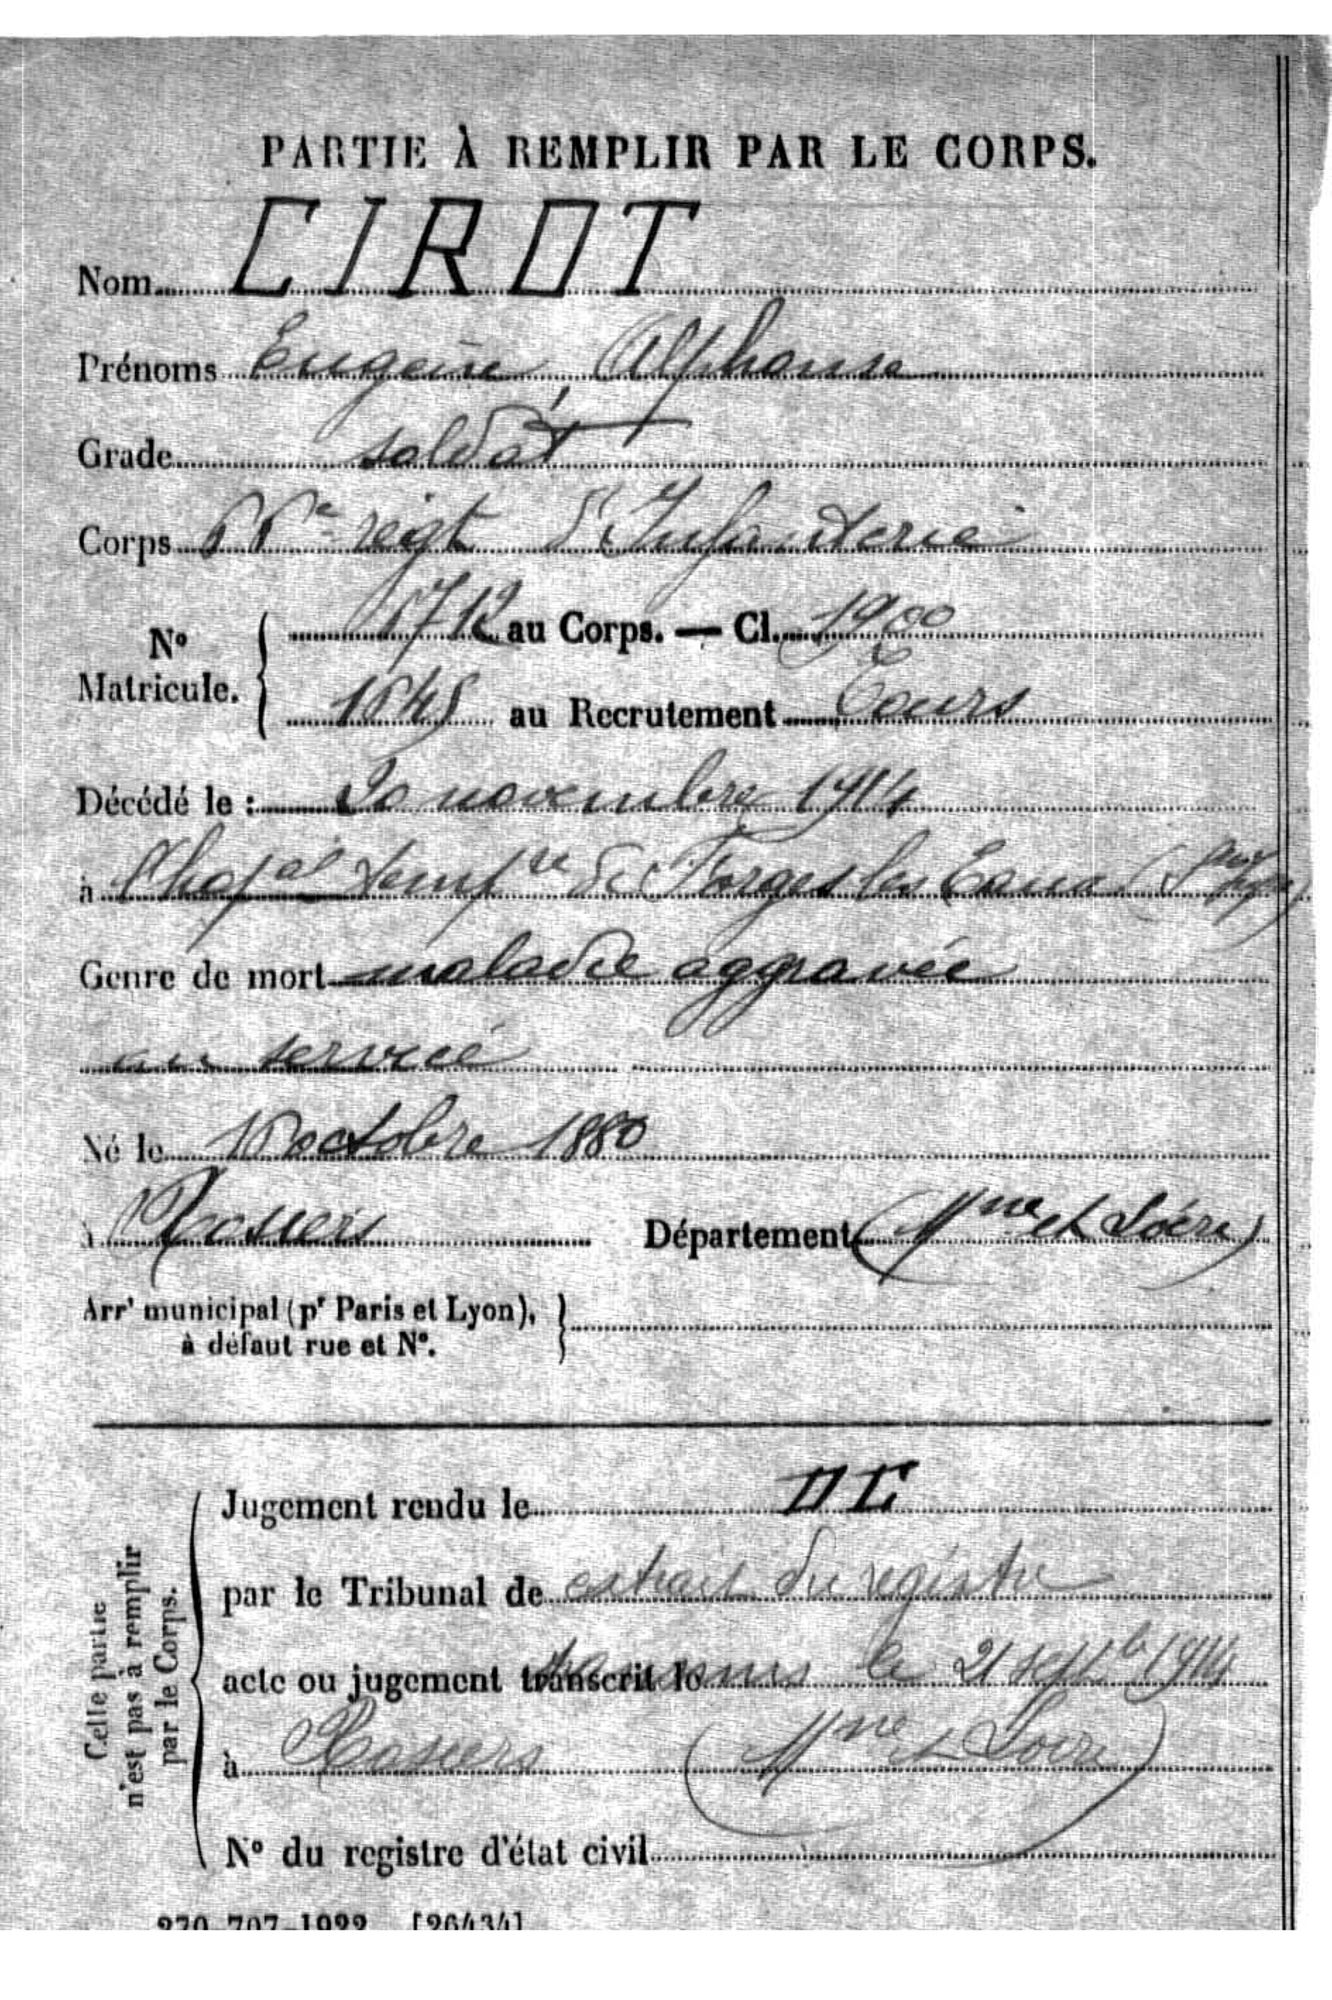 PARTIE À REMPLIR PAR LE CORPS.
Nom CIROT
Prénoms Eugène, Alphonse
Grade soldat
Corps 66e régt d'Infanterie
No Matricule. 6712 au Corps. — Cl. 1900
1645 au Recrutement Tours
Décédé le : 20 novembre 1914
à l'hopal tempre de Forges les Eaux
Genre de mort maladie aggravée
au service
Né le 16 octobre 1880
à Rosiers Département (Mne et Loire)
Arrt municipal (pr Paris et Lyon),
à défaut rue et No.
Cette partie
n'est pas à remplir
par le Corps.
Jugement rendu le
par le Tribunal de extrait du registre
acte ou jugement transcrit le transmis le 21 septb 1914
à Rosiers (Mne et Loire)
No du registre d'état civil
270-707-1922. [26434]